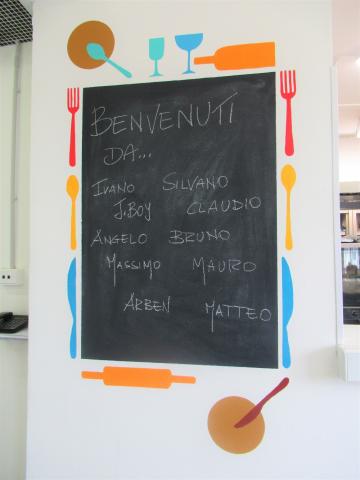 BENVENUTI
DA...
IVANO SILVANO
J.BOY CLAUDIO
ANGELO BRUNO
MASSIMO MAURO
ARBEN MATTEO